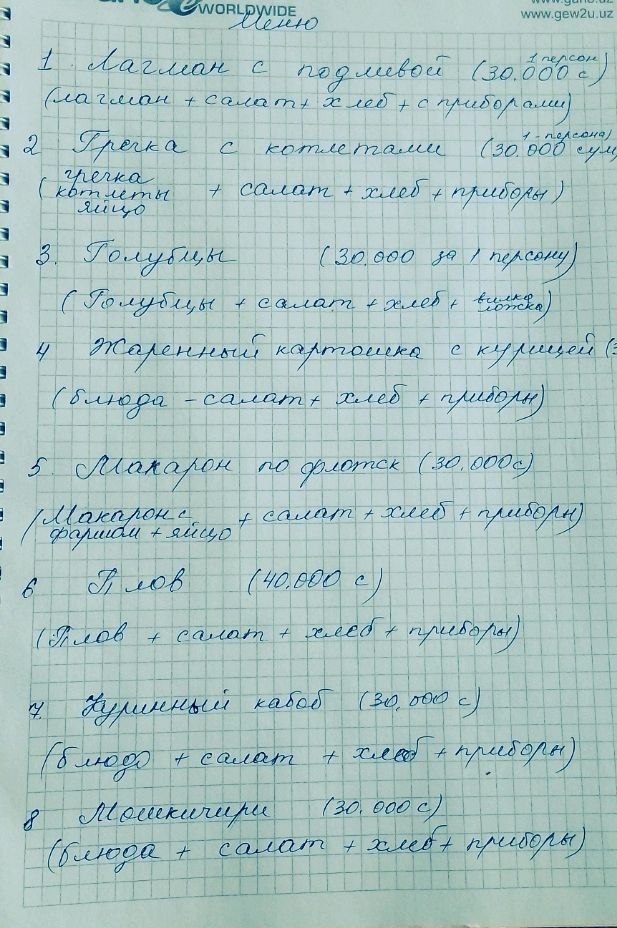 WORLDWIDE
www.gew2u.uz
Меню
1 Лагман с подливой (30.000 с) 1 персон
(лагман + салат + хлеб + с приборами)
2 Гречка с котлетами (30.000 сум 1 персона)
(гречка котлеты яйцо + салат + хлеб + приборы)
3. Голубцы (30.000 за 1 персону)
(Голубцы + салат + хлеб + вилка ложка)
4 Жаренный картошка с курицей (
(блюда - салат + хлеб + приборы)
5. Макарон по флотск (30.000 с)
(Макарон с фаршом + яйцо + салат + хлеб + приборы)
6 Плов (40.000 с)
(Плов + салат + хлеб + приборы)
7. Куринный кабоб (30.000 с)
(блюдо + салат + хлеб + приборы)
8 Мошкичири (30.000 с)
(блюда + салат + хлеб + приборы)